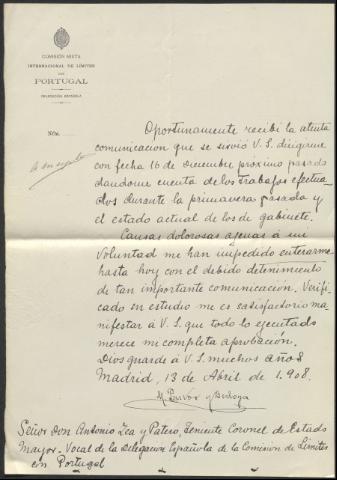 COMISIÓN MIXTA
INTERNACIONAL DE LÍMITES
CON
PORTUGAL
DELEGACIÓN ESPAÑOLA
Núm.
Oportunamente recibi la atenta
comunicacion que se sirvió V. S. dirigirme
con fecha 16 de Diciembre próximo pasado
dandome cuenta de los trabajos efectua-
dos durante la primavera pasada y
el estado actual de los de gabinete.
Causas dolorosas agenas á mi
voluntad me han impedido enterarme
hasta hoy con el debido detenimiento
de tan importante comunicacion. Verifi-
cado su estudio me es satisfactorio ma-
nifestar á V. S. que todo lo ejecutado
merece mi completa aprobación.
Dios guarde á V. S. muchos años
Madrid, 13 de Abril de 1.908.
Señor Don Antonio Zea y Patero, Teniente Coronel de Estado
Mayor. Vocal de la Delegacion Española de la Comision de Limites
con Portugal